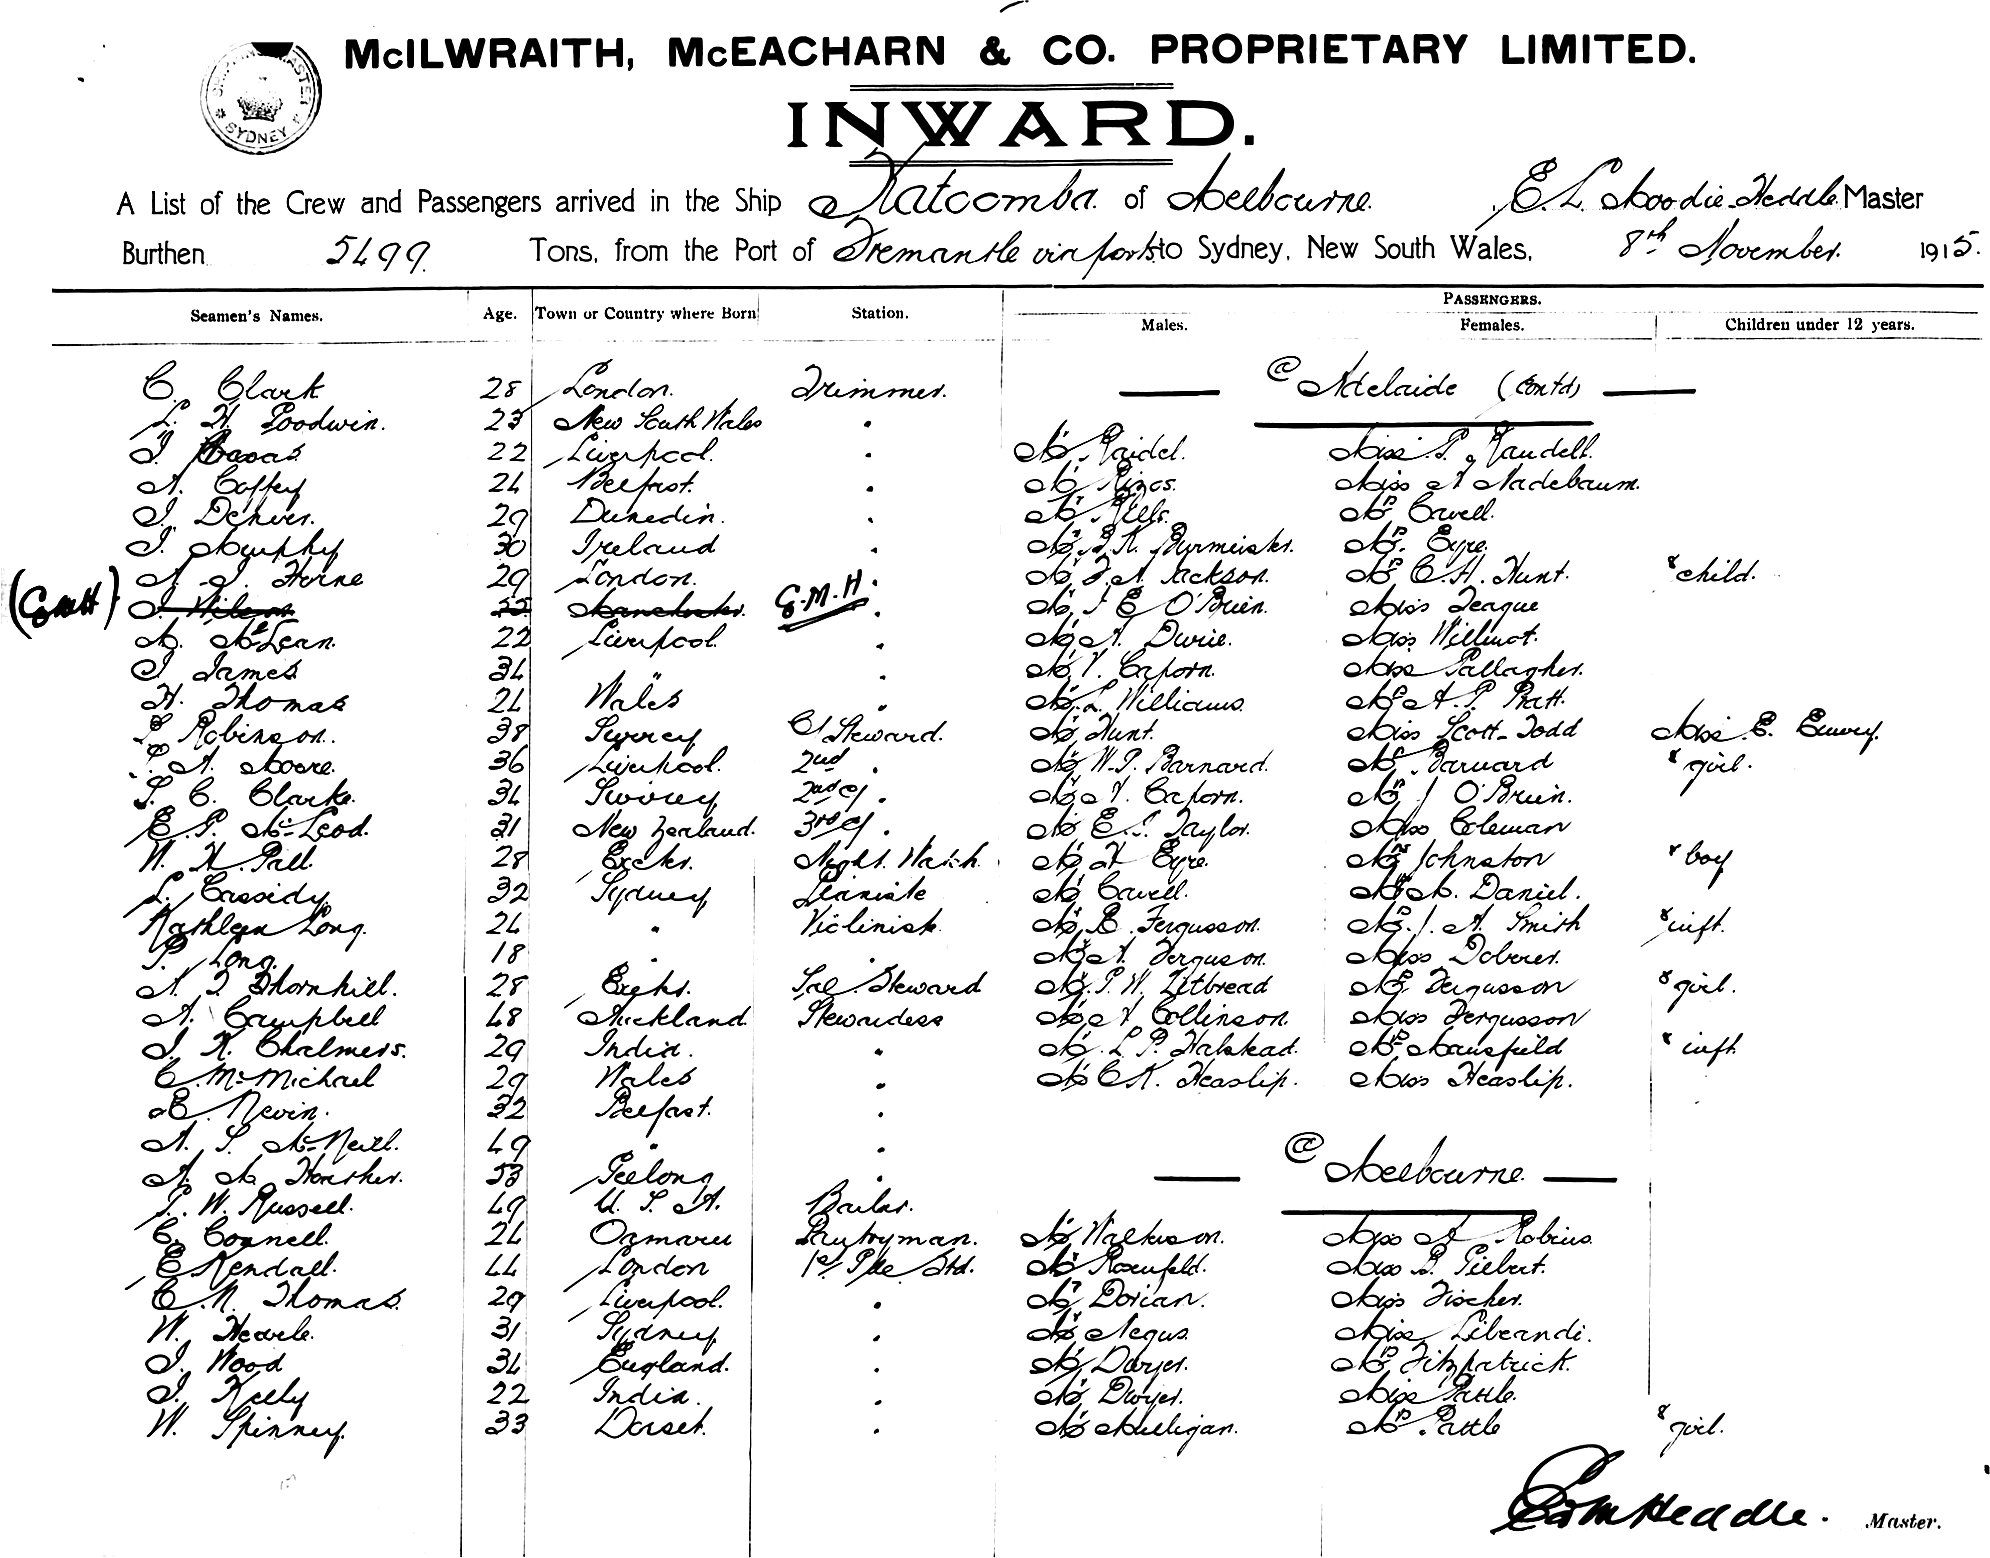 McILWRAITH, McEACHARN & CO. PROPRIETARY LIMITED.
SYDNEY
INWARD.
A List of the Crew and Passengers arrived in the Ship Katoomba. of Melbourne. E. L. Moodie Heddle. Master
Burthen 5499. Tons, from the Port of Fremantle via ports to Sydney, New South Wales, 8th November. 1915.
PASSENGERS.
Seamen's Names. Age. Town or Country where Born Station. Males. Females. Children under 12 years.
C. Clark 28 London. Trimmer. @ Adelaide (Contd)
L. H. Goodwin. 23 New South Wales "
J. 22 Liverpool. " Mr Raidel. Miss G. Randell.
A. Coffey 24 Belfast. " Mr Miss A Nadebaum.
J. Denver. 29 Dunedin. " Mr Mrs Cavell.
J. Murphy 30 Ireland " Mr Burmeister. Mrs. Eyre.
A. J. Horne 29 London. " Mr F. A. Jackson. Mrs C. H. Hunt. & child.
(GMH) J. Wilson 22 Manchester. G.M.H. " Mr J E O'Brien. Miss Teague
M. McLean. 22 Liverpool. " Mr A. Durie. Miss Willmot.
J James 34 " " Mr V. Caporn. Miss Gallagher.
H. Thomas 24 Wales " Mr L. Williams. Mrs A. G. Pratt.
G Robinson. 38 Surrey C/ Steward. Mr Hunt. Miss Scott-Todd Miss E. Emery.
G. A. Moore. 36 Liverpool. 2nd " Mr W. G. Barnard. Mrs Barnard & girl.
S. C. Clarke. 34 Surrey 2nd C/ " Mr V. Caporn. Mrs J O'Brien.
E. G. McLeod. 31 New Zealand. 3rd C/ " Mr E. J. Taylor. Miss Coleman
W. H. Gall. 28 Night. Watch. Mr H Eyre. Mrs Johnston & boy
L. Cassidy 32 Sydney Pianiste Mr Cavell. Mrs M. Daniel.
Kathleen Long. 24 " Violinist. Mr B. Fergusson. Mrs. J. A. Smith & inft.
P. Long. 18 " " Mr A. Ferguson. Miss Doberer.
A. J Thornhill. 28 Sal. Steward Mr. G. W. Titbread Mrs Fergusson & girl.
A. Campbell 48 Auckland. Stewardess Mr V Collinson. Miss Fergusson
J. K. Chalmers. 29 India. " Mr. L. G. Halstead. Mrs Mansfield & inft.
C. McMichael 29 Wales " Mr C K. Heaslip. Miss Heaslip.
E. Nevin. 32 Belfast. "
A. S. McNeill. 49 " " @ Melbourne.
A. M. 53 Geelong "
G. W. Russell. 49 U. S. A. Barber.
C. Connell. 24 Oamaru Pantryman. Mr Watkinson. Miss A Robins.
E Kendall. 44 London 1st P/de Std. Mr Rosenfeld. Miss B. Giebert.
C. N. Thomas. 29 Liverpool. " Mr Dorian. Miss Fischer.
W. Hearle. 31 Sydney " Mr Negus. Miss Liberandi.
J. Wood 34 England. " Mr Dwyer. Mrs Fitzpatrick.
J. Kelly 22 India. " Mr Dwyer. Miss Pattle.
W. Spinney. 33 Dorset. " Mr Mulligan. Mrs Pattle & girl.
Heddle. Master.